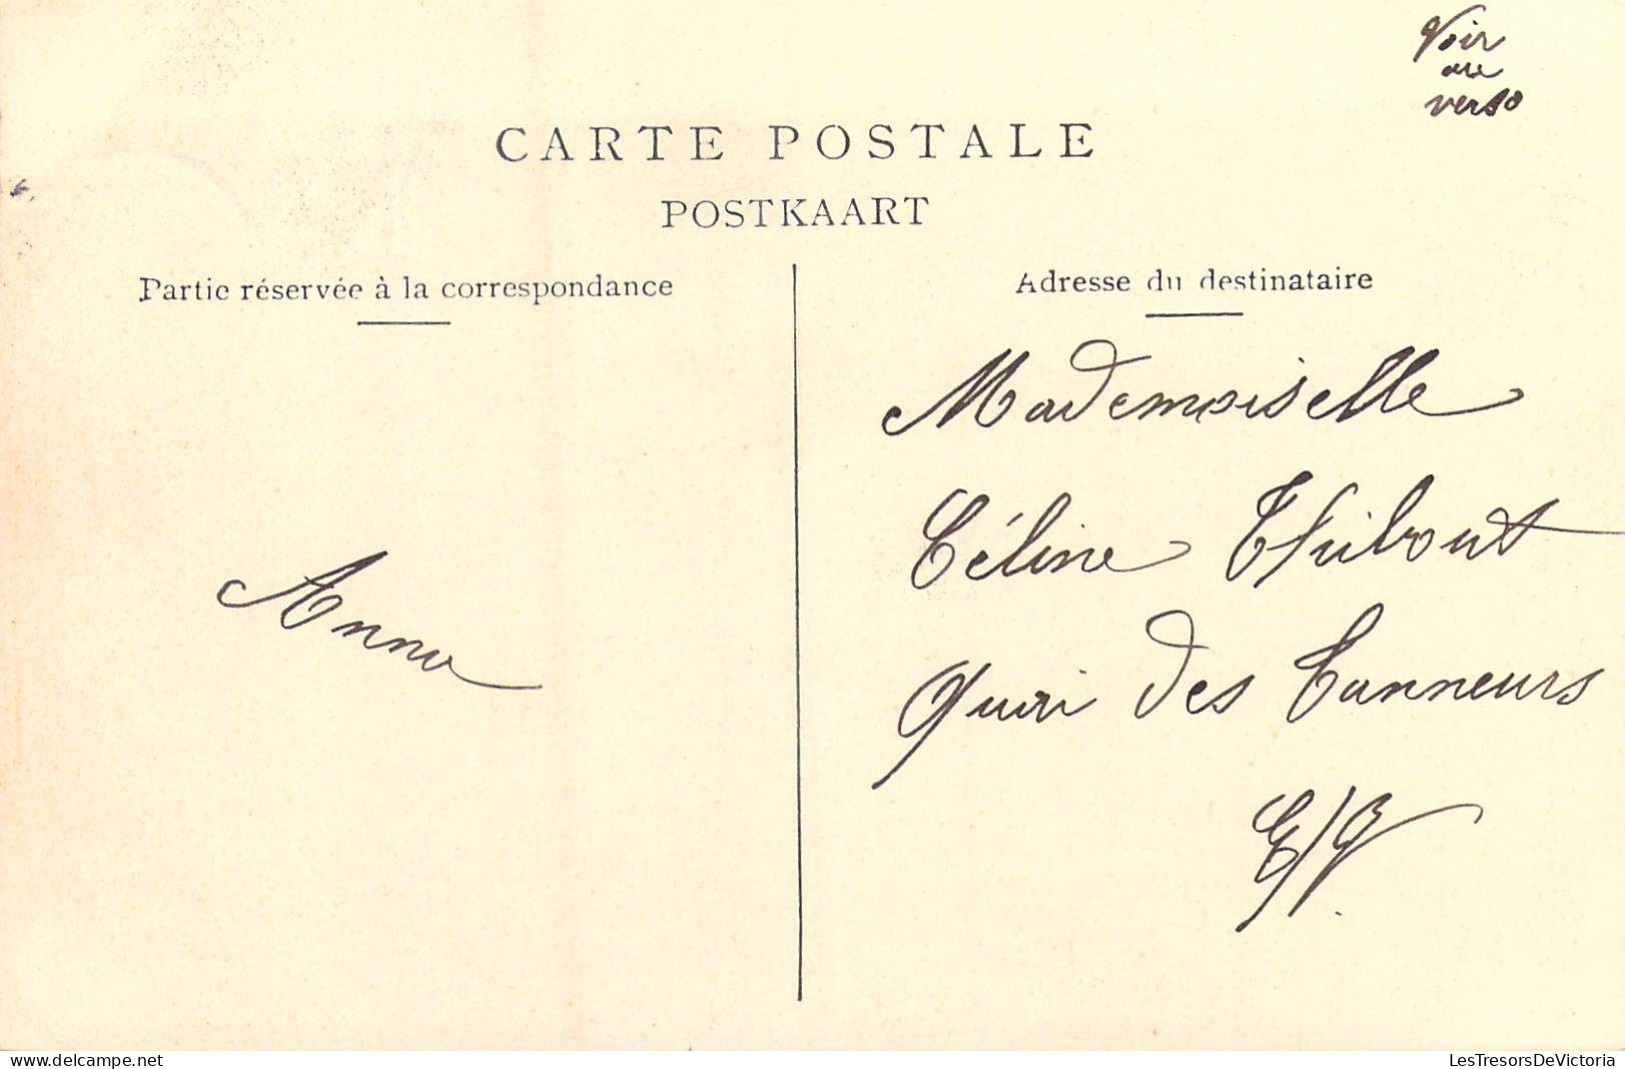 Voir
au
verso
CARTE POSTALE
POSTKAART
Partie réservée à la correspondance
Adresse du destinataire
Mademoiselle
Céline Thibout
Quai des Tanneurs
E/V
Anna
delcampe.net
LesTresorsDeVictoria